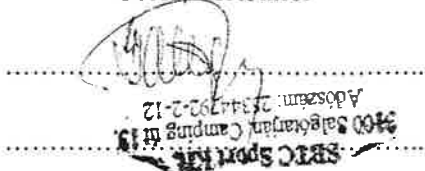 SBTC Sport Kft.
3100 Salgótarján, Camping út 19.
Adószám: 25344792-2-12